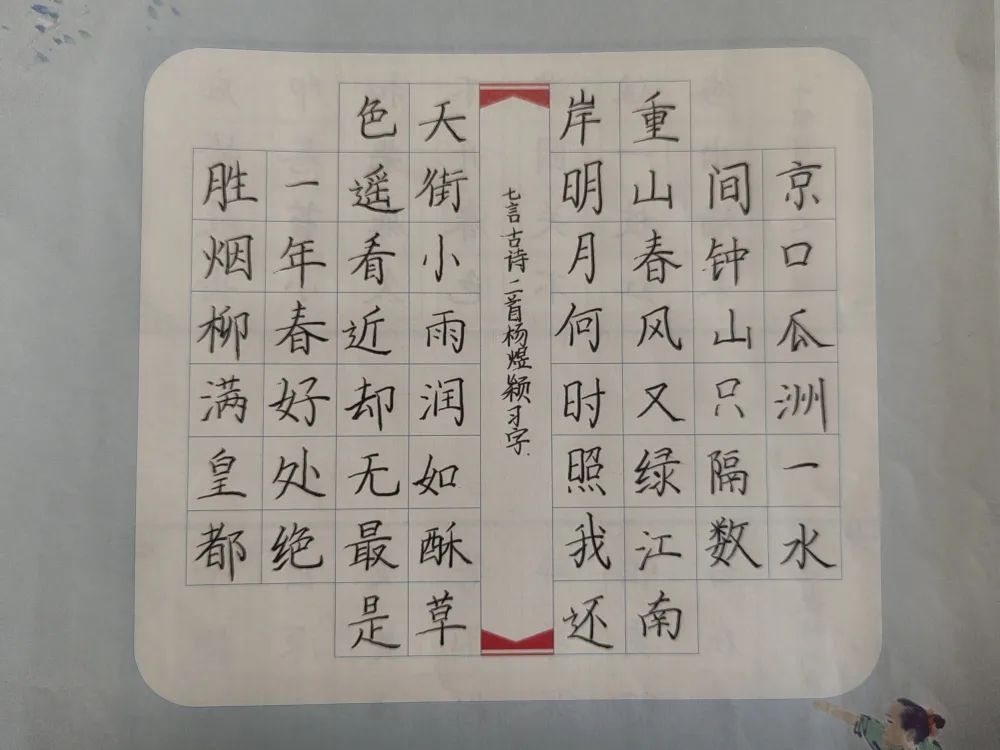 京口瓜洲一水
间钟山只隔数
重山春风又绿江南
岸明月何时照我还
七言古诗二首杨煜颖习字.
天街小雨润如酥草
色遥看近却无最是
一年春好处绝
胜烟柳满皇都